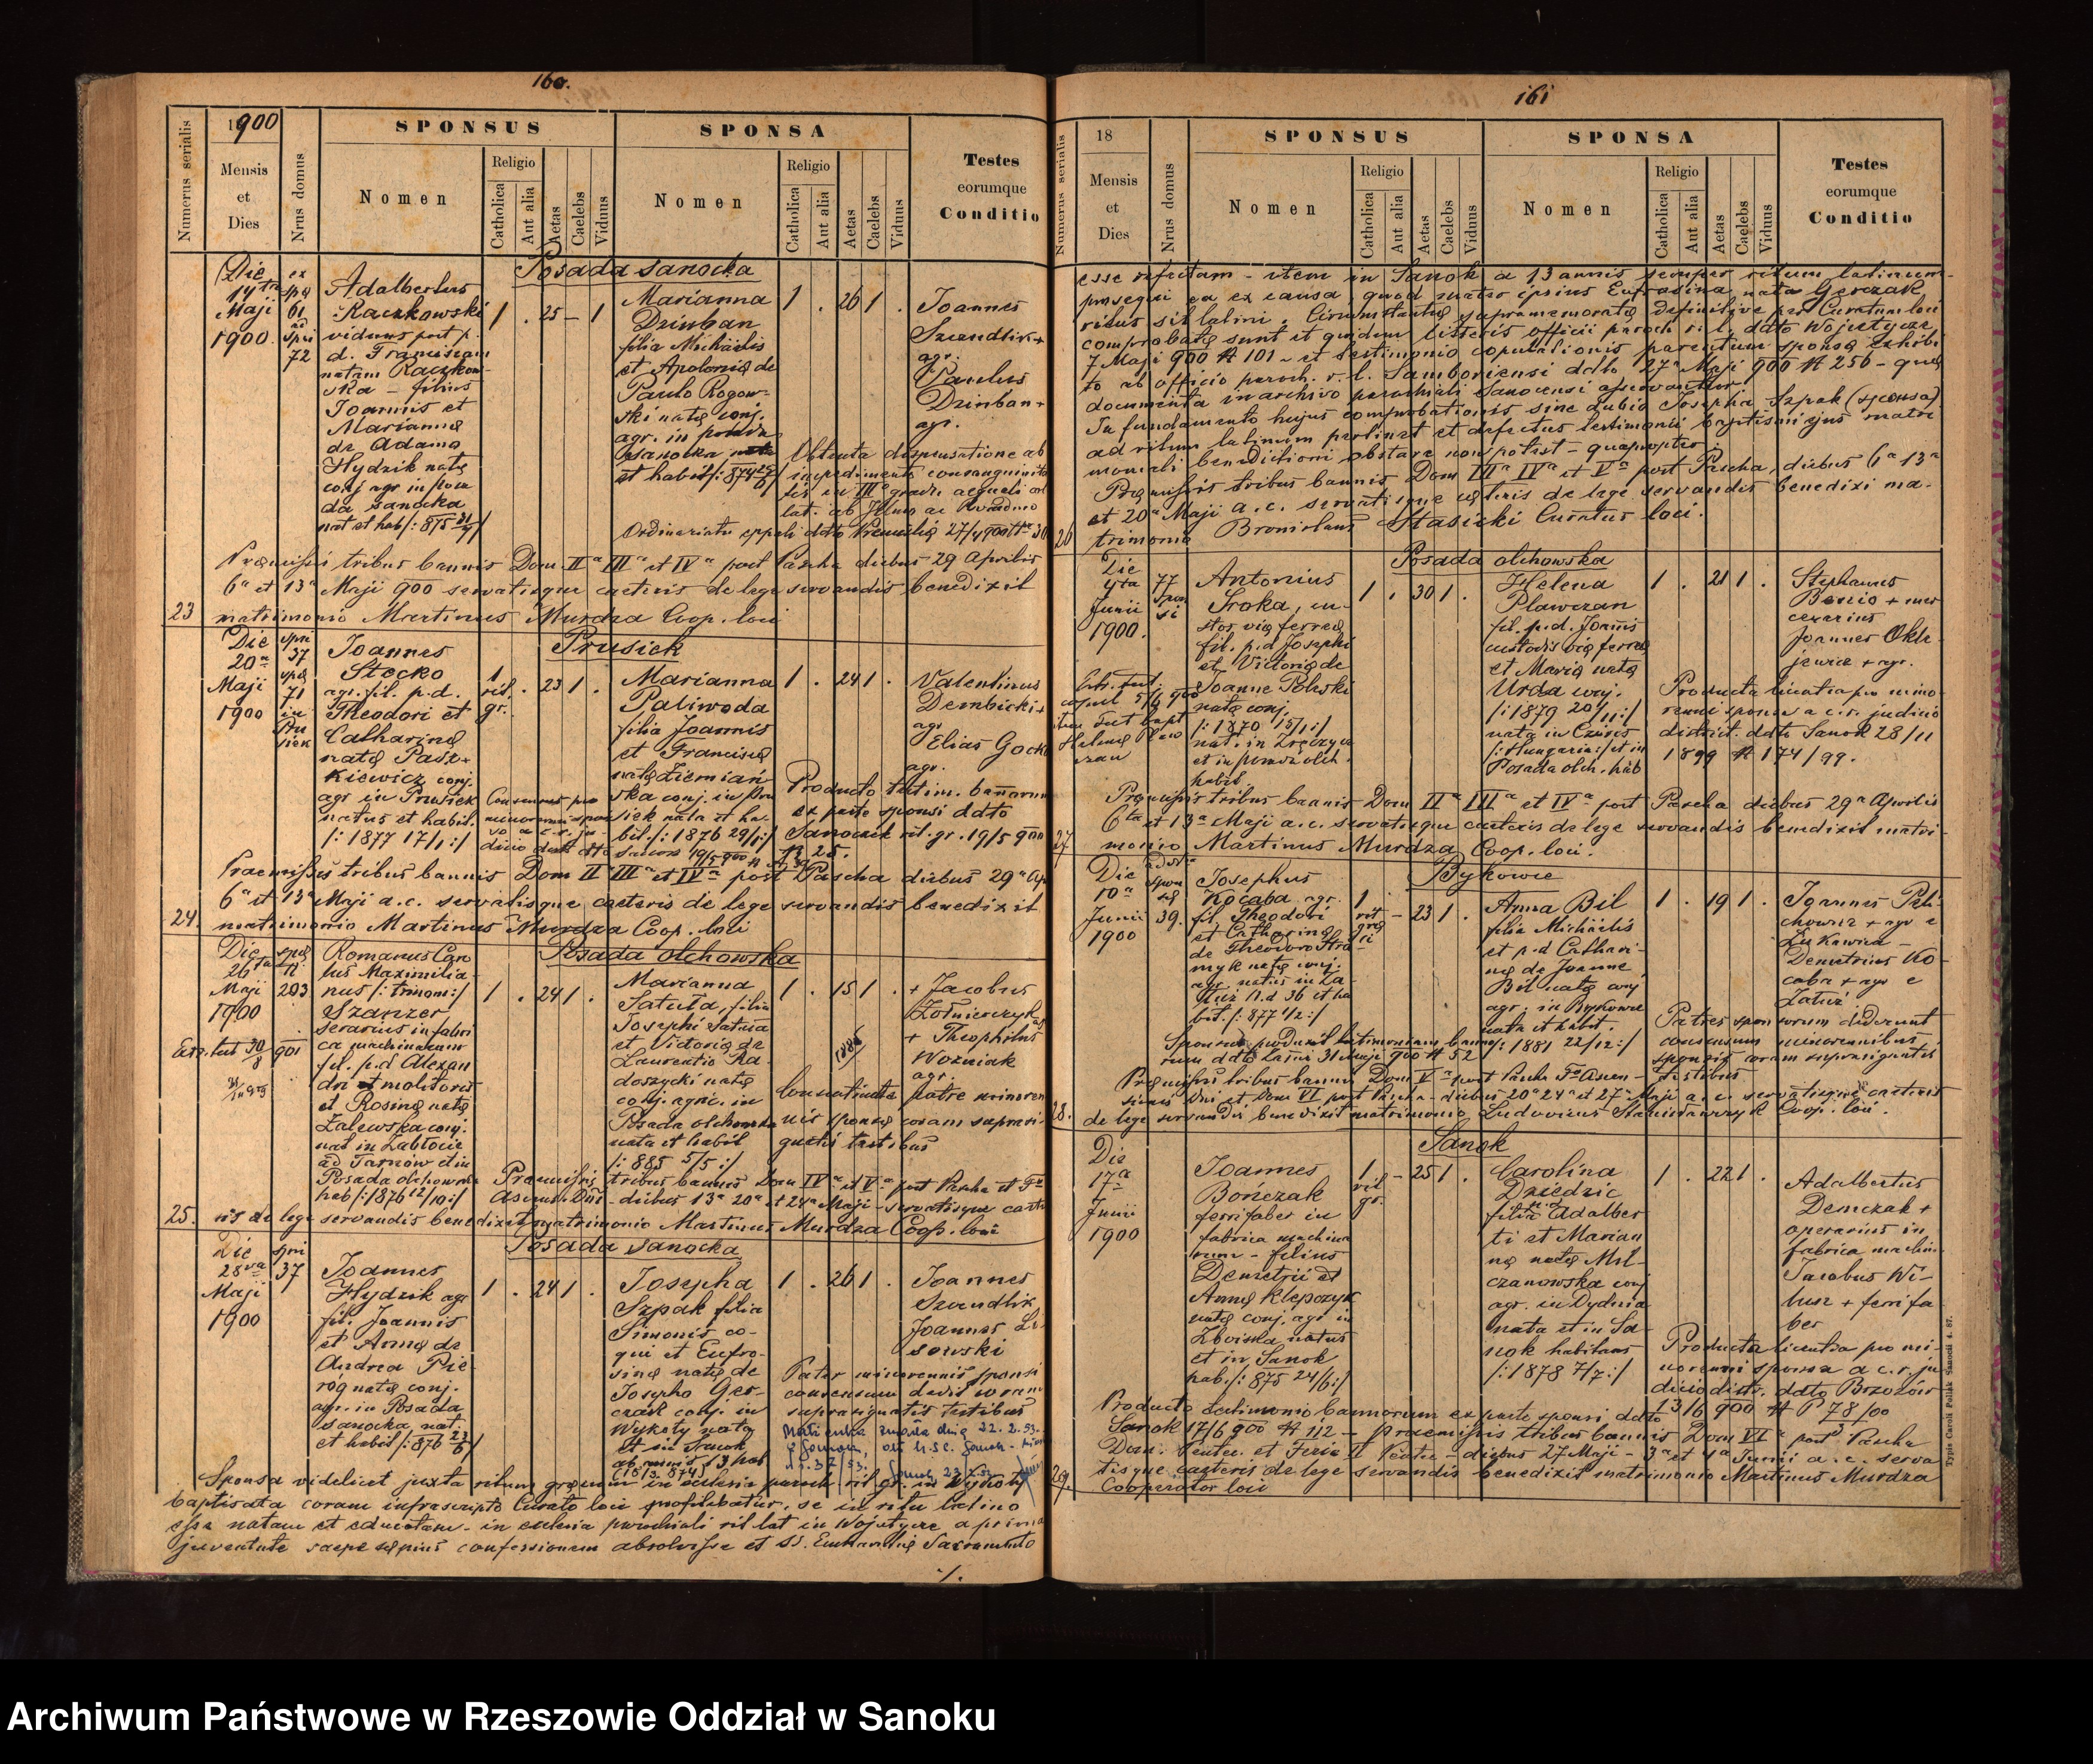 160.
Numerus serialis
1900
Mensis
et
Dies
Nrus domus
SPONSUS
Nomen
Religio
Catholica
Aut alia
Aetas
Caelebs
Viduus
SPONSA
Nomen
Religio
Catholica
Aut alia
Aetas
Caelebs
Viduus
Testes
eorumque
Conditio
Posada sanocka
Die
14ta
Maji
1900
61
72
Adalbertus
Raczkowski
viduus post p.
d. Franciscam
natam Raczkow-
ska - filius
Joannis et
Mariannę
de Adamo
Hydzik natę
conj agr in Posa
da sanocka
nat et hab
1 . 25 - 1
Marianna
Dziuban
filia Michaelis
et Apolonię de
Paulo Rogow-
ski natę conj.
agr. in posada
sanocka nata
et habit
1 . 26 1 .
Joannes
Szendlik +
agr.
Paulus
Dziuban +
agr.
Obtenta dispensatione ab
impedimento consanguinita
tis in III gradu aequali
Praemissis tribus bannis Dom IIa IIIa et IVa post Pascha diebus 29 Aprilis
6a et 13a Maji 900 servatisque caeteris de lege servandis benedixit
23 matrimonio Martinus Murdza Coop. loci
Prusiek
Die
20a
Maji
1900
37
71
in
Pru
siek
Joannes
Stecko
agr. fil. p.d.
Theodori et
Catharinę
natę Pasz-
kiewicz conj.
agr in Prusiek
natus et habit.
/: 1877 17/1 :/
1
rit.
gr.
. 23 1 .
Marianna
Paliwoda
filia Joannis
et Franciscę
natę Ziemiań
ska conj. in Pru
siek nata et ha-
bit. /: 1876 29/1 :/
1 . 24 1 .
Valentinus
Dembicki +
agr
Elias Gocko
agr.
Producto testim. bannorum
ex parte sponsi ddto
Sanoczek rit. gr. 19/5 900
№ 25.
Praemissis tribus bannis Dom II III et IVa post Pascha diebus 29a Ap
6a et 13a Maji a.c. servatisque caeteris de lege servandis benedixit
24. matrimonio Martinus Murdza Coop. loci
Posada olchowska
Die
26ta
Maji
1900
203
Romanus Caro
lus Maximilia-
nus /: trinom :/
Szanzer
serarius in fabri
ca machinarum
fil. p.d Alexan
dri et molitoris
et Rosinę natę
Zalewska conj.
nat in Zabłocie
ad Tarnow et in
Posada olchowska
hab /: 1876 12/10 :/
1 . 24 1 .
Marianna
Satuła, filia
Josephi Satuła
et Victorię de
Laurentio Ra-
doszycki natę
conj. agric. in
Posada olchowska
nata et habit
/: 885 5/5 :/
1 . 15 1 .
1885
+ Jacobus
Żołnierczyk
+ Theophilus
Wozniak
agr.
Consentiente patre minoren
nis sponsę coram suprasi-
gnatis testibus
Praemissis tribus bannis Dom IVa et Va post Pascha et Fo
Ascens. Dni - diebus 13a 20a et 24a Maji - servatisque caete
25. ris de lege servandis benedixit matrimonio Martinus Murdza Coop. loci
Posada sanocka
Die
28va
Maji
1900
37
Joannes
Hydzik agr
fil. Joannis
et Annę de
Andrea Pie-
róg natę conj.
agr. in Posada
sanocka nat.
et habit /: 876 23/6 :/
1 . 24 1 .
Josepha
Szpak filia
Simonis co-
qui et Eufro-
sinę natę de
Josepho Ger-
czak conj. in
Wykoty nata
et in Sanok
ab annis 13 hab
1 . 26 1 .
Joannes
Szendlik
Joannes Li-
sowski
Pater minorennis sponsi
consensum dedit coram
suprasignatis testibus
Sponsa videlicet juxta ritum graecum in ecclesia paroch. rit gr. in Wykoty
baptisata coram infrascripto Curato loci profitebatur, se in ritu latino
esse natam et educatam - in ecclesia parochiali rit lat in Wojutycze a prima
juventute saepe sępius confessionem absolvisse et SS. Eucharistię Sacramento
./.
161
Numerus serialis
18
Mensis
et
Dies
Nrus domus
SPONSUS
Nomen
Religio
Catholica
Aut alia
Aetas
Caelebs
Viduus
SPONSA
Nomen
Religio
Catholica
Aut alia
Aetas
Caelebs
Viduus
Testes
eorumque
Conditio
esse refectam - item in Sanok a 13 annis semper ritum latinum
prosequi ea ex causa, quod mater ipsius Eufrasina nata Gerczak
ritus sit latini. Circumstantię supramemoratę definitive per Curatum loci
comprobatę sunt et quidem litteris officii paroch r. l. ddto Wojutycze
7 Maji 900 № 101 - et testimonio copulationis parentum sponsę exhibi
to ab officio paroch. r. l. Samboriensi ddto 27a Maji 900 № 256 - quę
documenta in archivo parochiali Sanocensi asservantur
In fundamento hujus comprobationis sine dubio Josepha Szpak (sponsa)
ad ritum latinum pertinet et defectus testimonii baptismi ejus matri
moniali benedictioni obstare non potest - quapropter
Praemissis tribus bannis Dom IIIa IVa et Va post Pascha, diebus 6a 13a
et 20a Maji a.c. servatisque caeteris de lege servandis benedixi ma-
26 trimonio Bronislaus Stasicki Curatus loci.
Posada olchowska
Die
4ta
Junii
1900.
77
Antonius
Sroka, cu-
stos vię ferreę
fil. p.d Josephi
et Victorię de
Joanne Polwski
natę conj.
/: 1870 15/1 :/
nat. in Zręczyce
et in posada olch.
habit.
1 . 30 1 .
Helena
Pławczan
fil. p.d. Joannis
custodis vię ferreę
et Marię natę
Urda conj.
/: 1879 20/11 :/
/: Hungaria :/ et in
Posada olch. hab
1 . 21 1 .
Stephanus
Benio + mer
cenarius
Joannes Okle-
jewicz + agr.
Producta licentia pro mino-
renni sponsa a c.r. judicio
district. ddto Sanok 28/11
1899 № 174/99.
Praemissis tribus bannis Dom IIa IIIa et IVa post Pascha diebus 29a Aprilis
6ta et 13a Maji a.c. servatisque caeteris de lege servandis benedixit matri-
27. monio Martinus Murdza Coop. loci.
Bykowce
Die
10a
Junii
1900
39.
Josephus
Kocaba agr.
fil. Theodori
et Catharinę
de Theodoro Stra-
myk natę conj.
agr. natus in Za-
1
rit
grę
ci
- 23 1 .
Anna Bil
filia Michaelis
et p.d Cathari-
nę de Joanne
Bil natę conj
agr. in Bykowce
nata et habit.
/: 1881 22/12 :/
1 . 19 1 .
Joannes Peli-
chowicz + agr e
Zukowica -
Demetrius Ko-
caba + agr e
Załuż
Patres sponsorum dederunt
consensum minorennibus
sponsis coram suprasignatis
testibus
Praemissis tribus bannis Dom Va post Pascha Fo Ascen-
sionis Dni et Dom VI post Pascha - diebus 20a 24a et 27a Maji a.c. servatisque caeteris
28. de lege servandis benedixit matrimonio Ludovicus Stanisławczyk Coop. loci.
Sanok
Die
17a
Junii
1900
Joannes
Bończak
ferrifaber in
fabrica machina
rum - filius
Demetrii et
Annę Klepczyk
natę conj. agr in
Zboiska natus
et in Sanok
hab. /: 875 24/6 :/
1
rit
gr.
- 25 1 .
Carolina
Dziedzic
filia Adalber
ti et Marian
nę natę Mil-
czanowska conj
agr. in Dydnia
nata et in Sa-
nok habitans
/: 1878 7/7 :/
1 . 22 1 .
Adalbertus
Demczak +
operarius in
fabrica machin.
Jacobus Wi-
+ ferrifa-
ber
Producta licentia pro mi-
norenni sponsa a c. r. ju
dicio distr. ddto Brzozów
13/6 900 № P 78/00
Producto testimonio bannorum ex parte sponsi ddto
Sanok 17/6 900 № 112 - praemissis tribus bannis Dom VIa post Pascha
Dom. Pentec. et Feria II Pentec - diebus 27 Maji - 3a et 4a Junii a.c. serva
29. tisque caeteris de lege servandis benedixit matrimonio Martinus Murdza
Cooperator loci
Typis Caroli Pollak Sanoci 4. 87.
Archiwum Państwowe w Rzeszowie Oddział w Sanoku